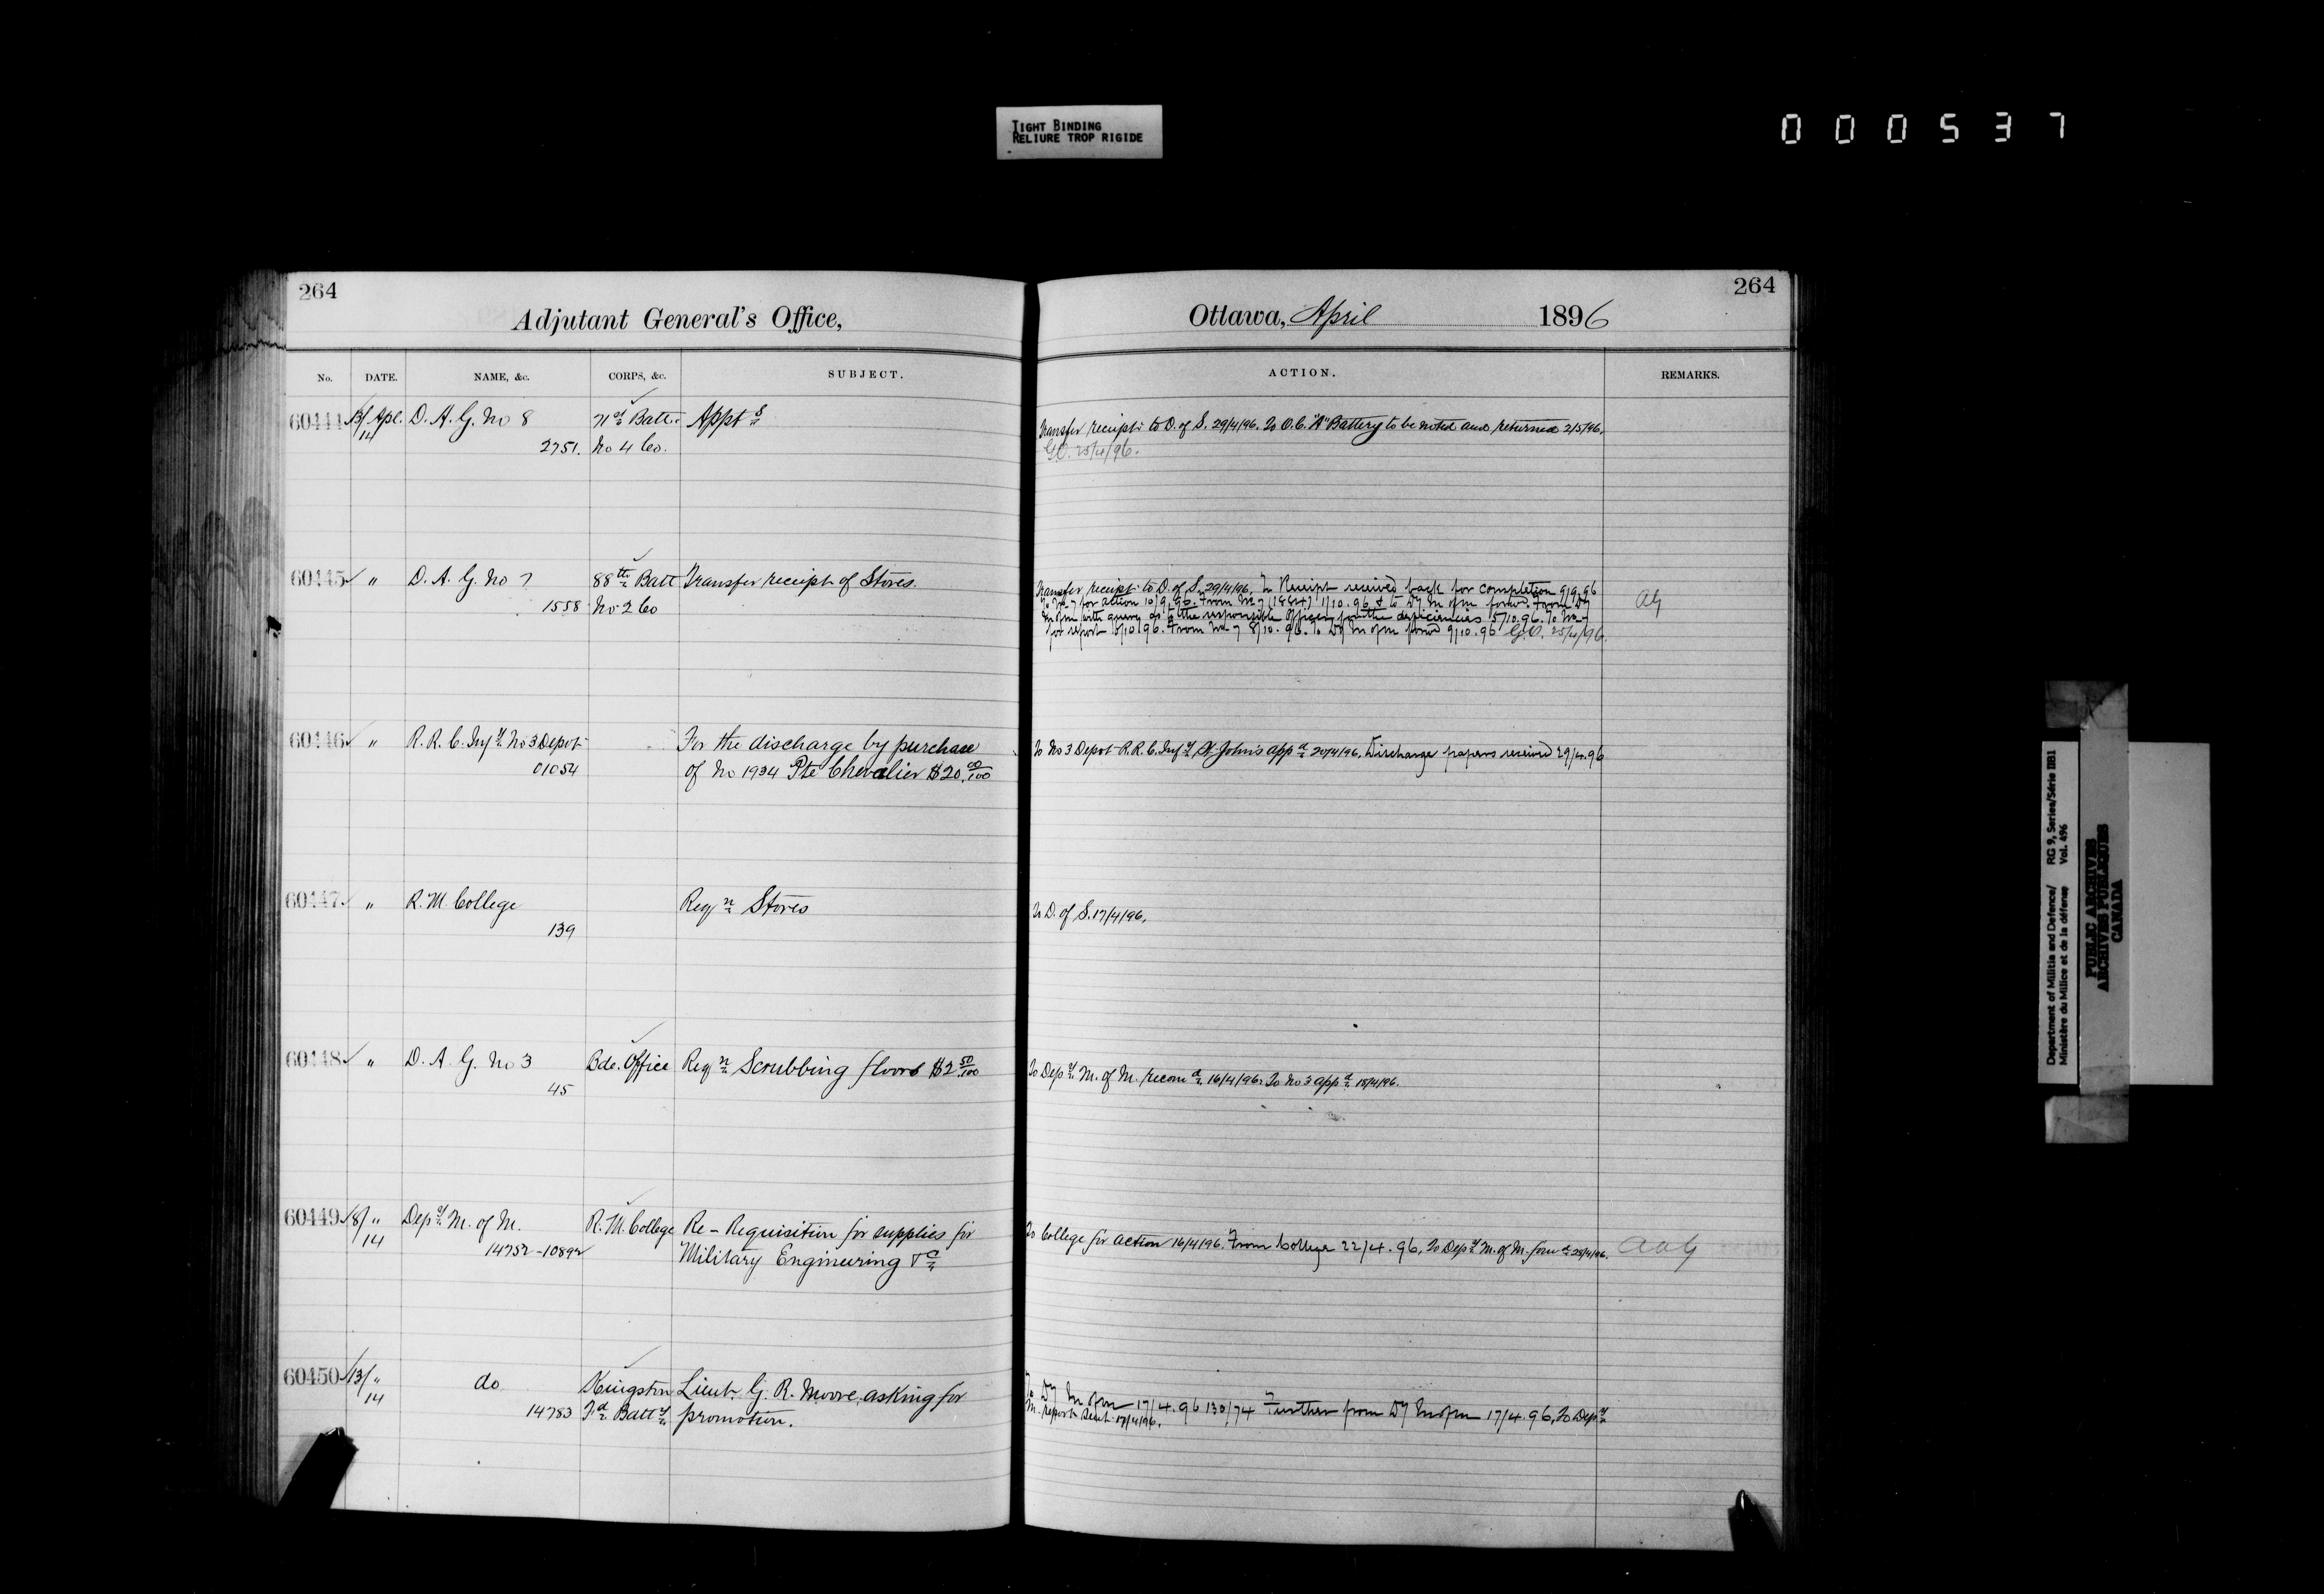 TIGHT BINDING
RELIURE TROP RIGIDE
000537
264
Adjutant General's Office,
No. DATE. NAME, &c. CORPS, &c. SUBJECT.
60444 13/14 Apl. D. A. G. No 8 71st Batt. Appts
2751. No 4 Co.
60445 " D. A. G. No 7 88th Batt Transfer receipt of Stores.
1558 No 2 Co
60446 " R. R. C. Infy. No 3 Depot For the discharge by purchase
01054 of No 1934 Pte Chevalier $20.00/100
60447 " R. M. College Reqn Stores
139
60448 " D. A. G. No 3 Bde. Office Reqn Scrubbing floors $2 50/100
45
60449 8/14 " Depy M. of M. R. M. College Re-Requisition for supplies for
14752-10892 Military Engineering &c
60450 13/14 " do Kingston Lieut. G. R. Moore, asking for
14783 Fd Batty promotion.
264
Ottawa, April 1896
ACTION. REMARKS.
Transfer receipt to D. of S. 29/4/96. To O.C. "A" Battery to be noted and returned 2/5/96.
G.O. 25/4/96.
Transfer receipt to D. of S. 29/4/96. Receipt received back for completion 9/9/96 AG
for action 10/9/96. From No 7 1/10.96 & to Dy M of M forwd. From Dy
M of M with query as to the responsible Officer for the deficiencies 5/10.96. To No 7
for report 6/10/96. From No 7 8/10.96. To Dy M of M forwd 9/10.96 G.O. 25/4/96.
To No 3 Depot R.R.C. Infy St. John's appd 20/4/96. Discharge papers received 29/4.96
To D. of S. 17/4/96.
To Depy M. of M. recomd 16/4/96. To No 3 appd 18/4/96.
To College for action 16/4/96. From College 22/4.96. To Depy M. of M. forwd 23/4/96. AAG
To Dy M of M 17/4.96 130/74 Further from Dy M of M 17/4.96. To Depy
M. report 17/4/96.
Department of Militia and Defence/ RG 9, Series/Série IIB1
Ministère du Milice et de la défense Vol. 496
PUBLIC ARCHIVES
ARCHIVES PUBLIQUES
CANADA